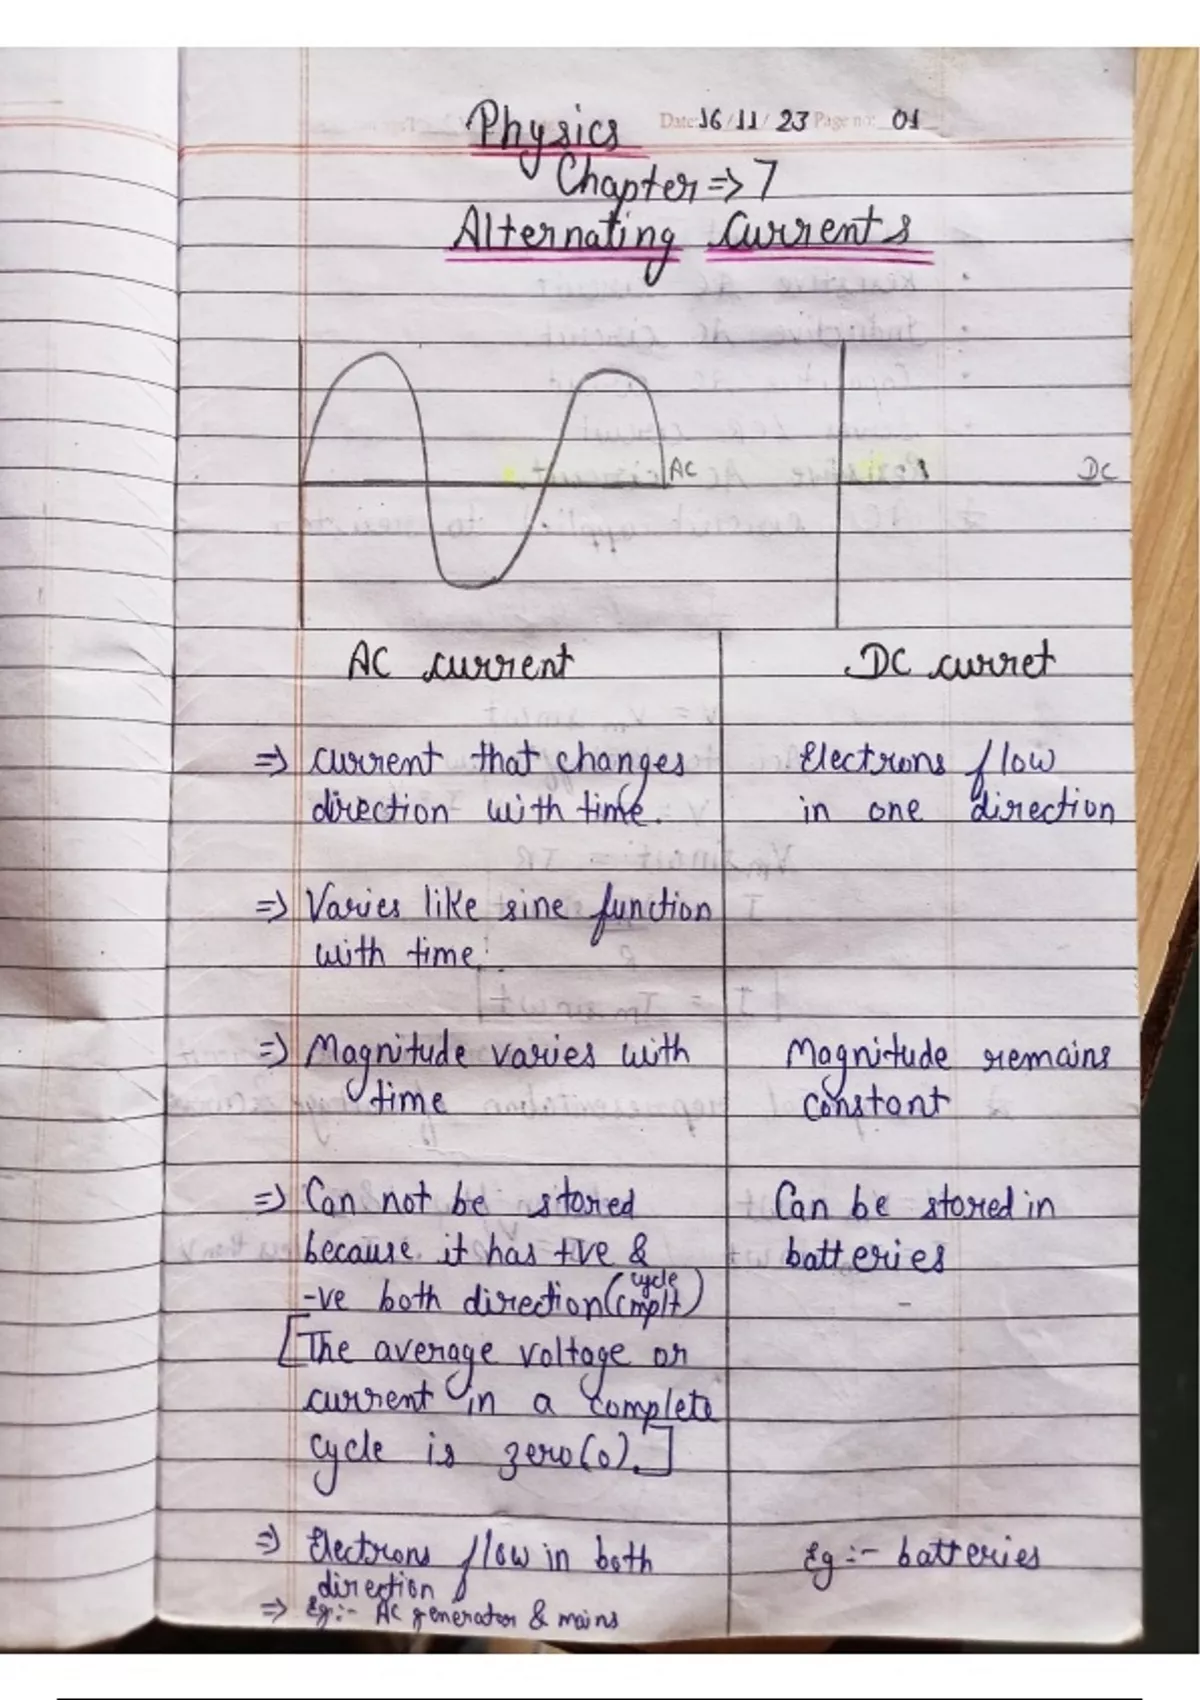 Physics Date: 16/11/23 Page no: 01
Chapter => 7
Alternating Currents
AC DC
AC current DC curret
=> current that changes Electrons flow
direction with time. in one direction
=> Varies like sine function
with time.
=> Magnitude varies with Magnitude remains
time constant
=> Can not be stored Can be stored in
because it has +ve & batteries
-ve both direction (cycle cmplt)
[The average voltage or
current in a complete
cycle is zero(0).]
=> Electrons flow in both Eg :- batteries
direction
=> Eg :- AC generator & mains